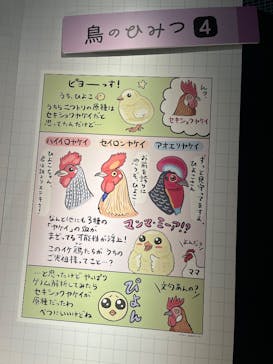 鳥のひみつ 4
ピヨーーっす!
うち、ひよこ
うちらニワトリの原種は
セキショクヤケイだと
思ってたんだけど…
ん?
セキショクヤケイ
ハイイロヤケイ
セイロンヤケイ
アオエリヤケイ
ずっと見守ってますよ、
ひよこちゃん。
お前を誇りに
思うぞ、ひよこ
なんと他にも3種の
「ヤケイ」の血が
まざってる可能性が浮上!
このイケ鶏たちがうちの
ご先祖様ってこと…?
マンマ・ミーア!?
よんだ?
ママ
…と思ったけどやっぱり
ゲノム解析してみたら
セキショクヤケイが
原種だったわ
べつにいいけどね
ぴよん
文句あんの?